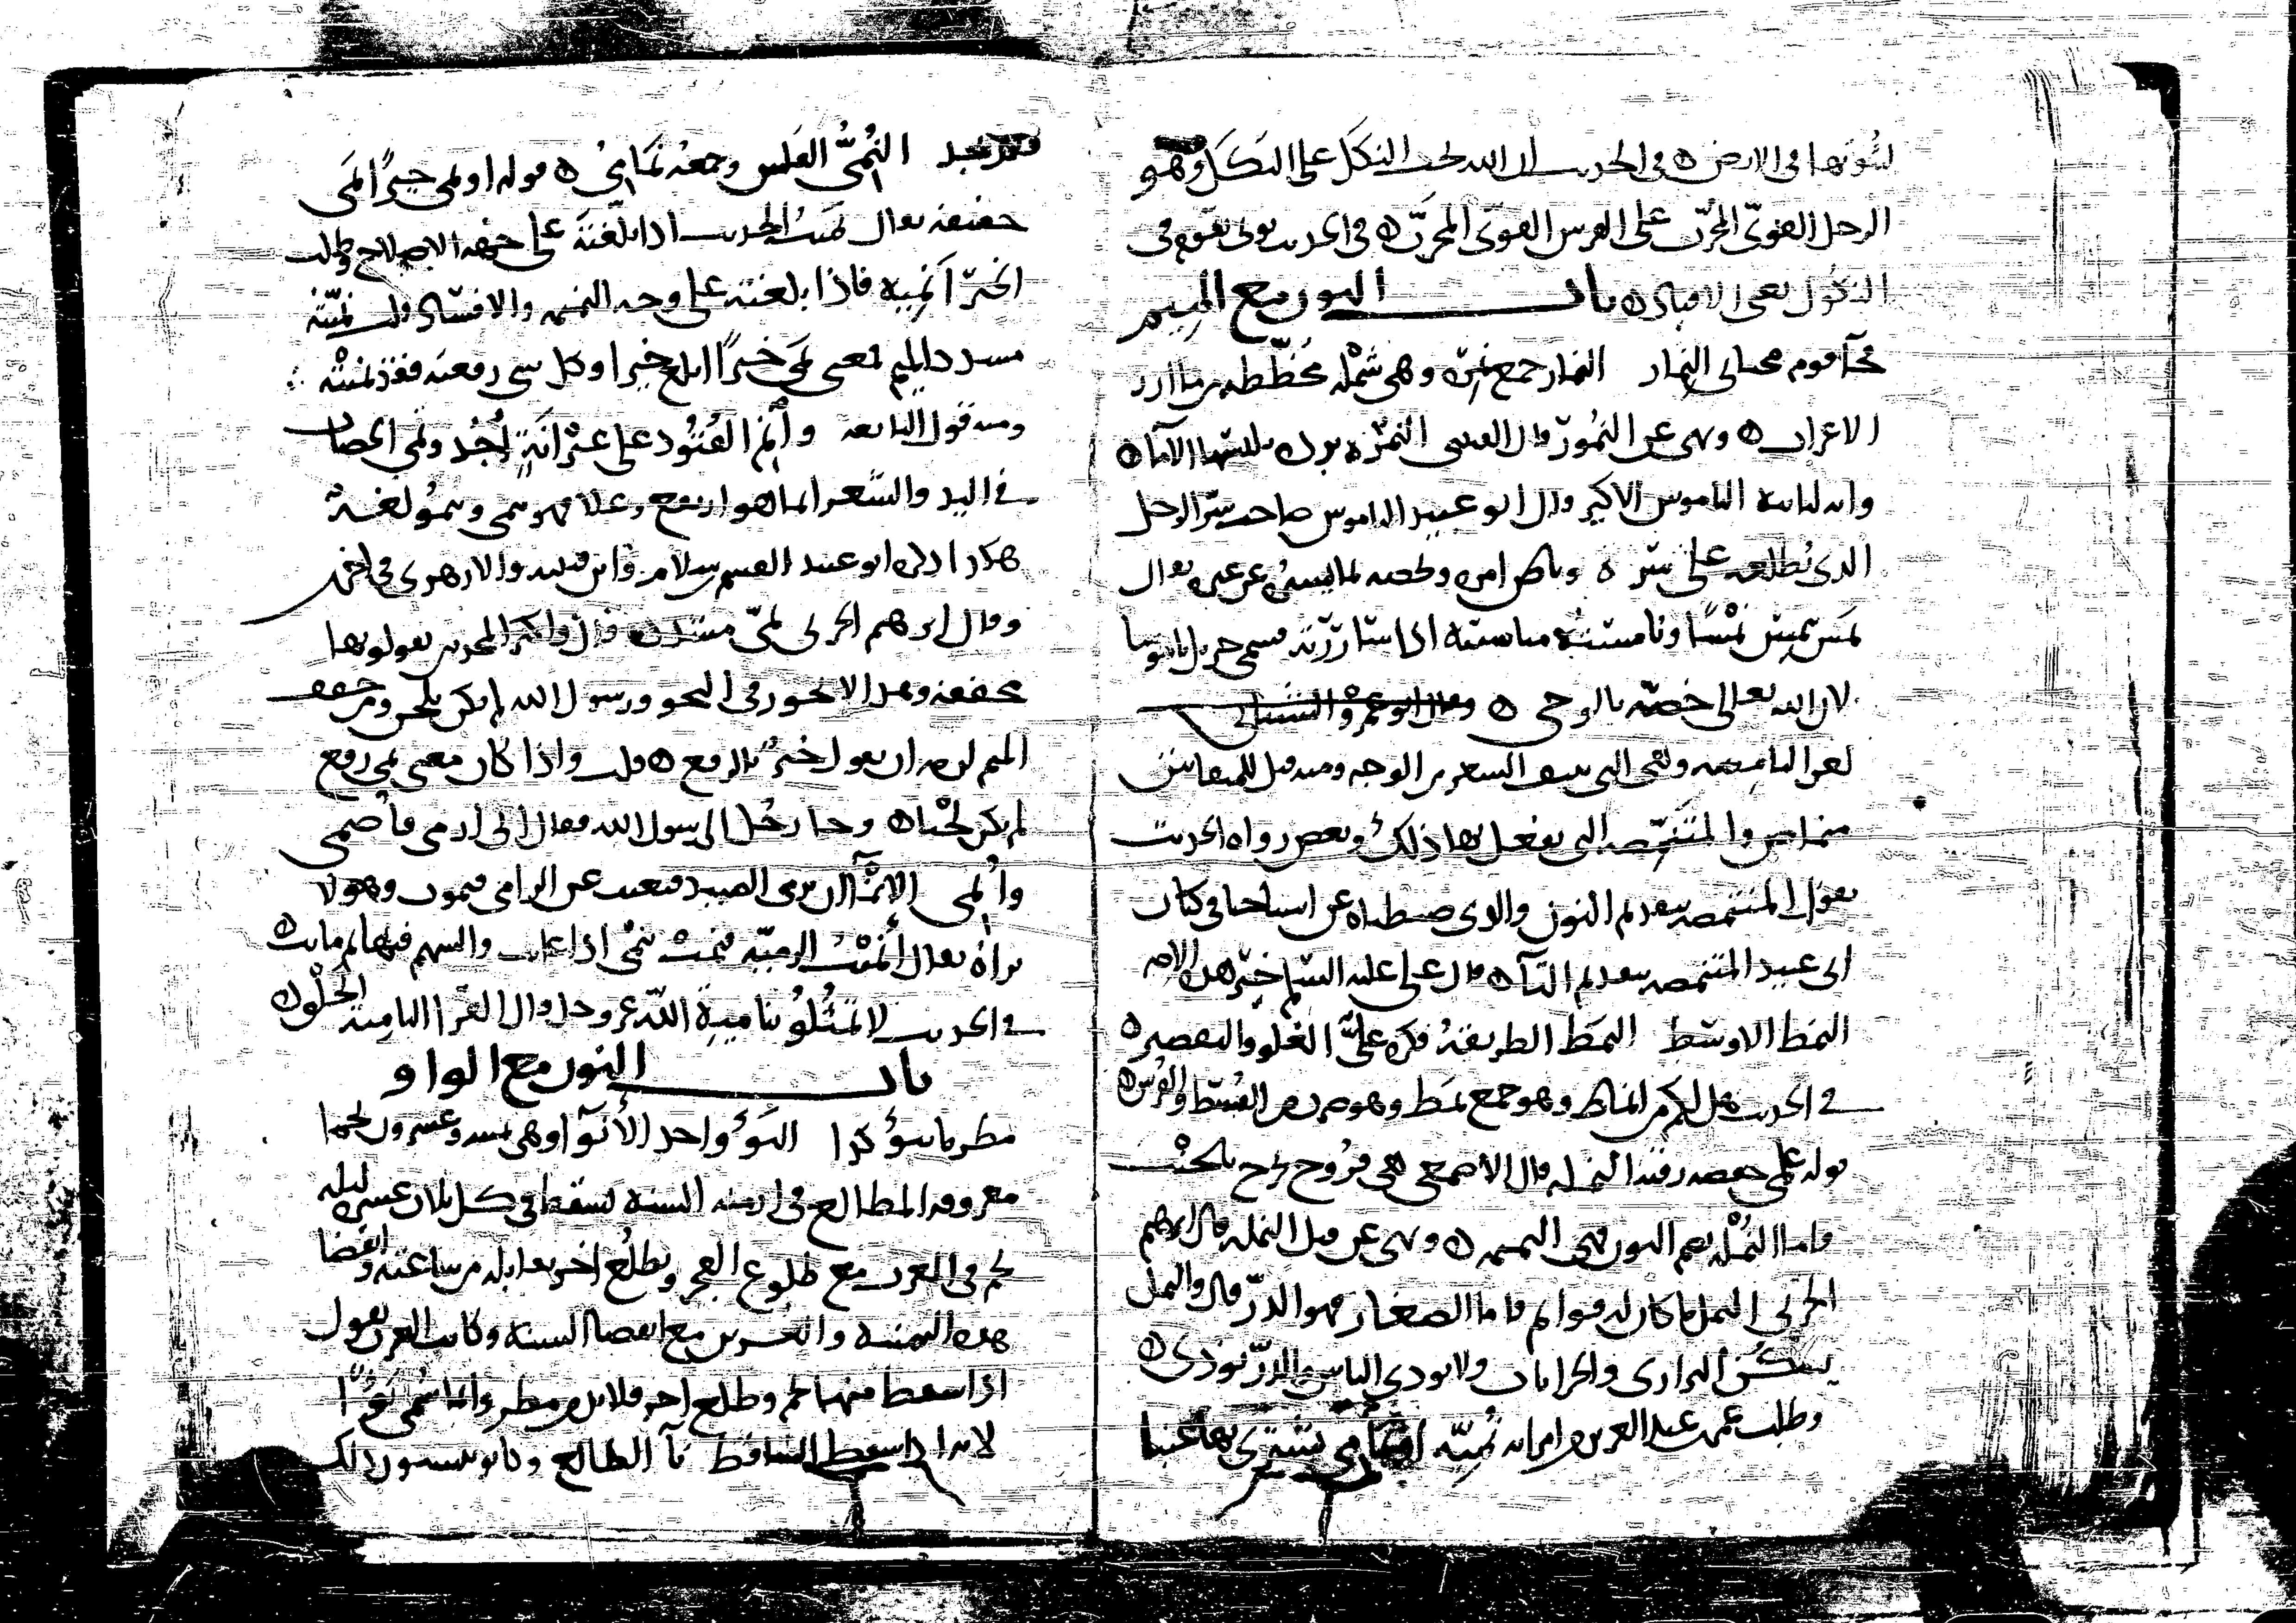 لثبوتها في الارض ه في الحديث ان الله يحب النكل على النكل وهو
الرجل القوى المجرب على الفرس القوى المجرب ه في الحديث نوى يقوم في
النكول يعني الاقياد ه باب النون مع الميم
فجآ قوم مجتابي النمار النمار جمع نمرة وهي شملة مخططه من مآزر
الاعراب ه ونهى عن النمور قال القتبي النمرة بردة يلبسها الامآ ه
وانه ليأتيه الناموس الاكبر قال ابو عبيد الناموس صاحب سر الرجل
الذي يطلعه على سره وباطن امره ويخصه بما يستره عن غيره يقال
نمس ينمس نمسا ونامسته منامسة اذا ساررته فسمي جبريل ناموسا
لان الله تعالى خصه بالوحي ه وقال ابو عمرو الشيباني
لعن النامصه وهي التي تنتف الشعر من الوجه ومنه قيل للمنقاش
منماص والمتنمصه التي يفعل بها ذلك وبعض رواة الحديث
يقول المنتمصه بتقديم النون والذي ضبطناه عن اشياخنا في كتاب
ابي عبيد المتنمصه بتقديم التآ ه قال علي عليه السلم خير هذه الامه
النمط الاوسط النمط الطريقة فكره علي الغلو والتقصير ه
في الحديث هل لكم من انماط وهو جمع نمط وهو ضرب من البسط والفرش ه
قوله علمي حفصه رقية النملة قال الاصمعي هي قروح تخرح بالجنب
فاما النملة بضم النون فهي النميمه ه ونهى عن قتل النملة قال ابرهيم
الحربي النمل ما كان له قوائم فاما الصغار فهو الذر قال والنمل
يسكن البراري والخرابات ولا يوذي الناس والذر يوذي ه
وطلب عمر بن عبد العزيز من امراته نمية او نمامي يشتري بها عنبا
فلم يجد النمي الفلس وجمعه نمامي ه قوله او نمى خيرا نمى
خفيفه يقال نميت الحديث اذا بلغته على جهه الاصلاح وطلب
الخير انميه فاذا بلغته على وجه النميمه والافساد قلت نميته
مشدد الميم فمعنى نمى خيرا ابلغ خيرا وكل شي رفعته فقد نميته
ومنه قول النابغه وانم القتود على عيرانة اجد ونمى الخضاب
في اليد والشعر انما هو ارتفع وعلا فهو ينمي وينمو لغية
هكذا ذكره ابو عبيد القسم بن سلام وابن قتيبه والازهري في اخرين
وقال ابرهيم الحربي نمى مشدده قال واكثر المحدثين يقولونها
مخففه وهذا لا يجوز في النحو ورسول الله لم يكن يلحن ومن خفف
الميم لزمه ان يقول خير بالرفع ه قلت واذا كان معنى نمى رفع
لم يكن لحنا ه وجا رجل الى رسول الله فقال اني ارمي فاصمي
وانمي الانمآ ان يرمي الصيد فيغيب عن الرامي فيموت وهو لا
يراه يقال انميت الرمية فنمت تنمي اذا غابت والسهم فيها ثم ماتت ه
في الحديث لا تمثلوا بنامية الله عز وجل قال الفرا النامية الخلق ه
باب النون مع الواو
مطرنا بنوء كذا النوء واحد الأنوآ وهي ثمنيه وعشرون نجما
معروفه المطالع في ازمنه السنة يسقط في كل ثلاث عشره ليله
نجم في المغرب مع طلوع الفجر ويطلع اخر يقابله من ساعته وانقضا
هذه الثمنية والعشرين مع انقضا السنة وكانت العرب تقول
اذا سقط منها نجم وطلع اخر فلا بد من مطر وانما سمي نوءا
لانه اذا سقط الساقط نآ الطالع وكانوا ينسبون ذلك